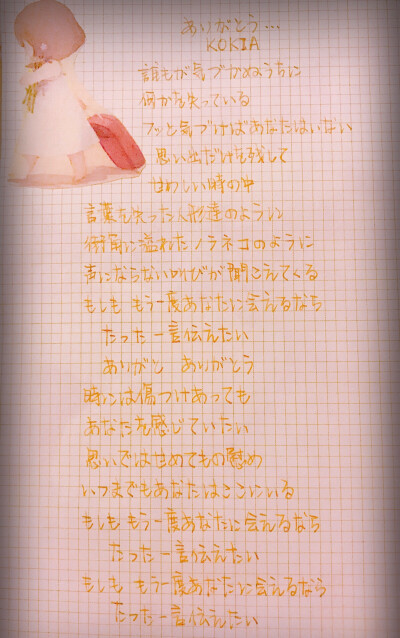 ありがとう...
KOKIA
誰もが気づかぬうちに
何かを失っている
フッと気づけばあなたはいない
思い出だけを残して
せわしい時の中
言葉を失った人形達のように
街角に溢れたノラネコのように
声にならない叫びが聞こえてくる
もしも もう一度あなたに会えるなら
たった一言伝えたい
ありがと ありがとう
時には傷つけあっても
あなたを感じていたい
思いではせめてもの慰め
いつまでもあなたはここにいる
もしも もう一度あなたに会えるなら
たった一言伝えたい
もしも もう一度あなたに会えるなら
たった一言伝えたい